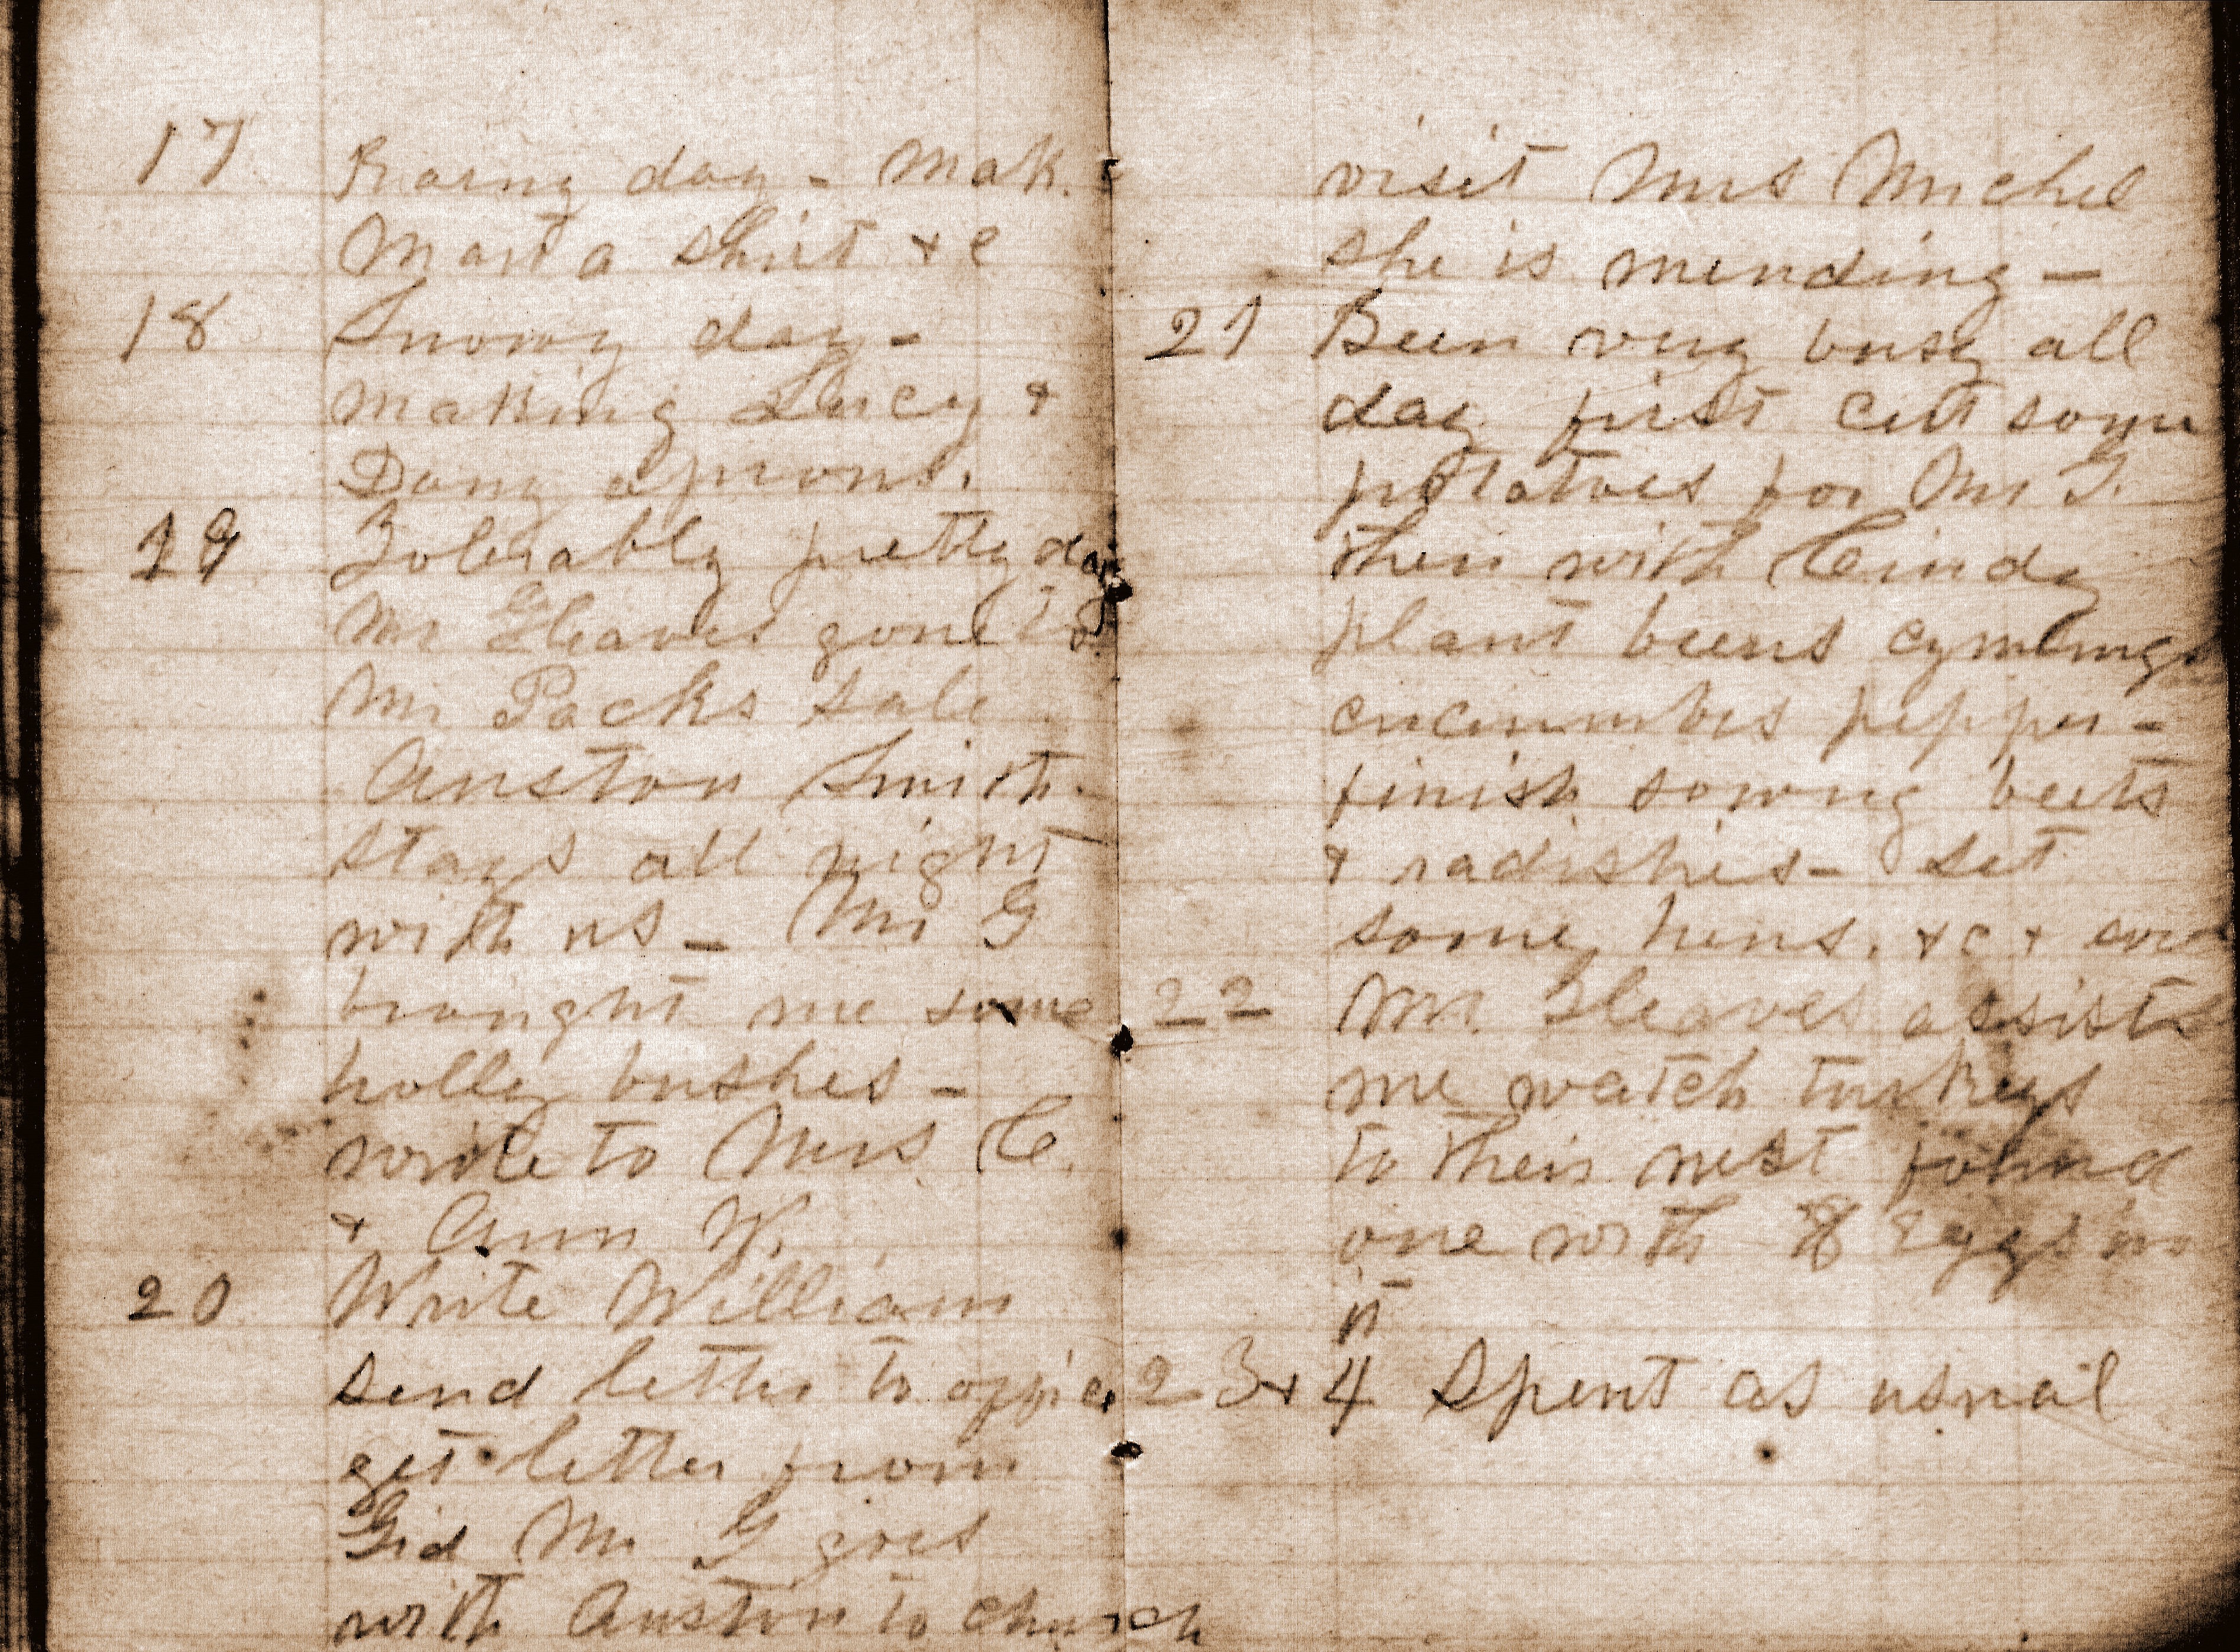 17 Rainy day - Make
Mart a shirt & c
18 Snowy day -
making Lucy &
Dany aprons.
19 Tolerably pretty day
Mr Gleaves gone to
Mr Packs sale
Auston Smith
stays all night
with us - Mr G
brought me some
holly bushes -
wrote to Mrs C.
& Ann W.
20 Write William
send letter to office
get letter from
Gid Mr G goes
with Auston to church
visit Mrs Michel
she is mending -
21 Been very busy all
day first cut some
potatoes for Mr G.
then with Cindy
plant beens cymlings
cucumbes pepper -
finish sowing beets
& radishes - set
some hens. & c &
22 Mr. Gleaves assists
me watch turkeys
to their nest found
one with 8 eggs in
it
23 & 4 Spent as usual